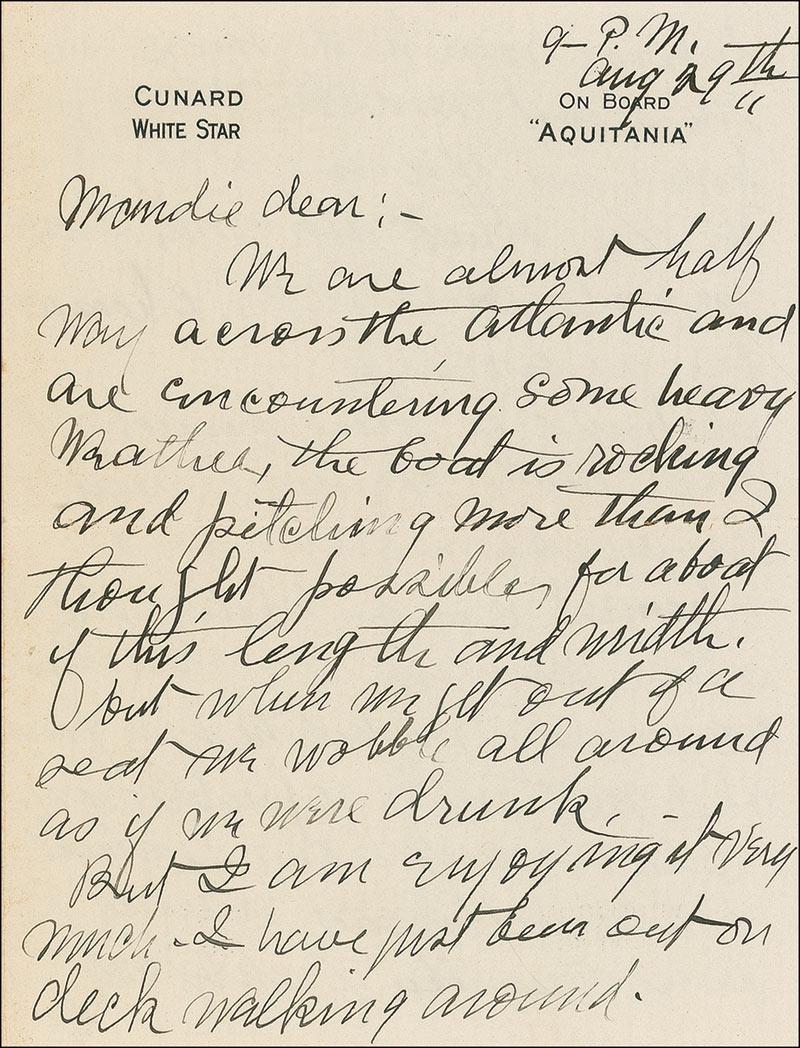 9- P. M.
Aug 29th
CUNARD
WHITE STAR
ON BOARD
"AQUITANIA"
Maudie dear:-
We are almost half
way across the Atlantic and
are encountering some heavy
weather, the boat is rocking
and pitching more than I
thought possible, for a boat
of this length and width.
but when we get out of a
seat we wobble all around
as if we were drunk.
But I am enjoying it very
much - I have just been out on
deck walking around.